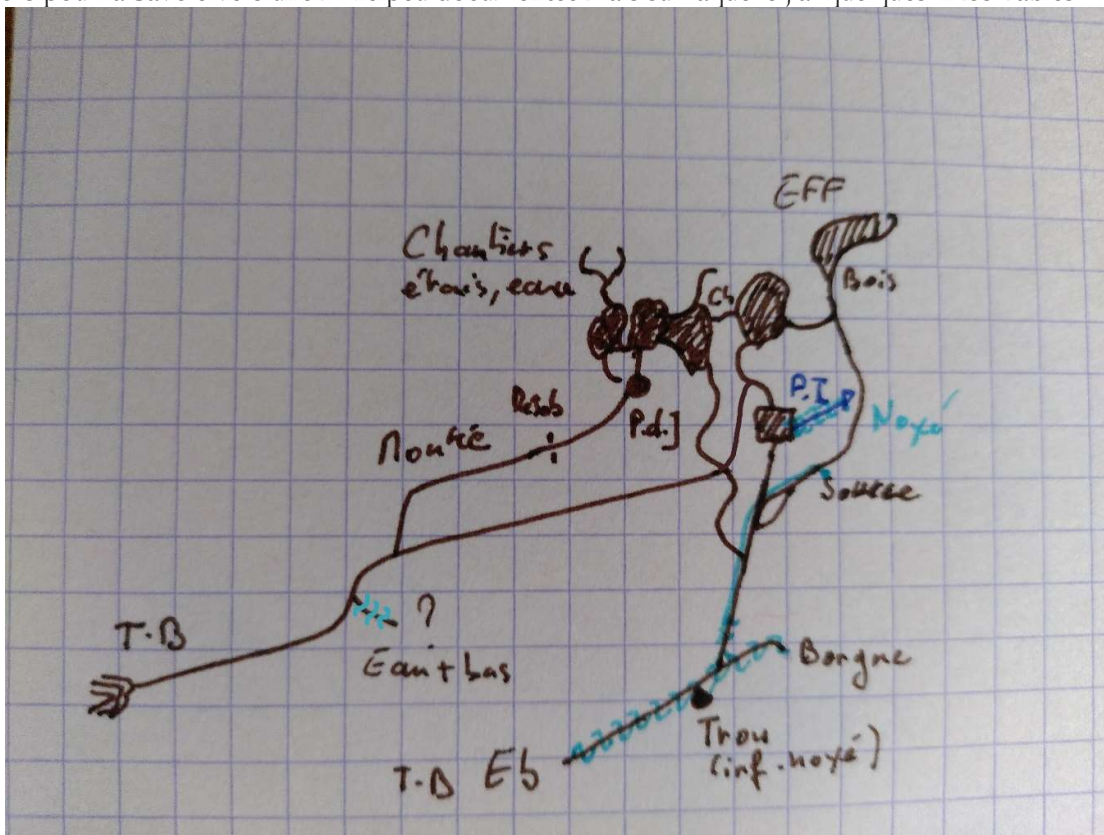 EFF
Chantiers
étais, eau
Ch
Bois
P.I
Noyé
P.d.J
Montée
Source
T.B
?
Eau + bas
Borgne
Trou
(inf. noyé)
T.B Eb